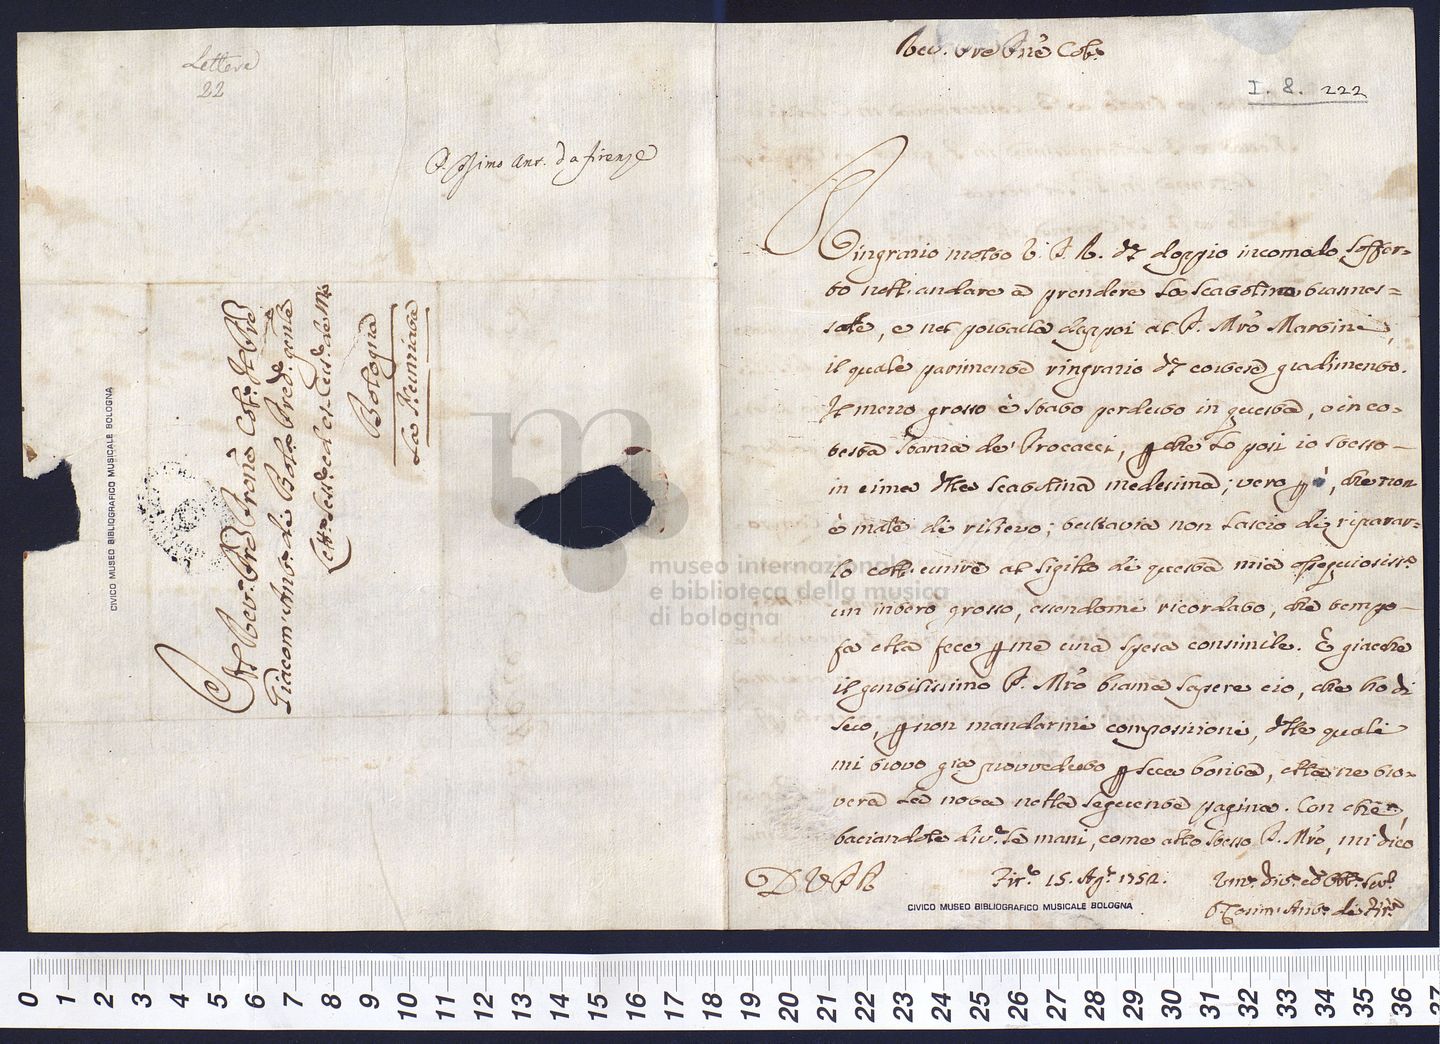 Lettere
22
P. Ant. da firenze
Al Rev. Pre Prone Col.
Giacom' Ant. de Bol. Pred.
Bologna
La Nunziata
CIVICO MUSEO BIBLIOGRAFICO MUSICALE BOLOGNA
Rev. Pre Prne Col.
I. 8. 222
Ringrazio molto V. P. R. del doppio incomodo soffer-
to nell'andare a prendere la scatolina trasmes=
sale, e nel portarla doppoi al P. Mro Martini,
il quale parimente ringrazio del cortese gradimento.
Il mezzo grosso è stato perduto in questa, o in co-
testa stanza de' Procacci, perche lo posi io stesso
in cima della scatolina medesima; vero però è, che non
è male di rilievo; tuttavia non lascio di riparar-
lo coll'unire al sigillo di questa mia ossequiosiss.
un intero grosso, essendomi ricordato, che tempo
fa ella fece per me una spesa consimile. E giacche
il gentilissimo P. Mro brama sapere cio, che ho di
suo, per non mandarmi composizioni, delle quali
mi trovo già provveduto per sua bontà, ella ne tro-
verà la nota nella seguente pagina. Con che,
baciandole div.e le mani, come allo stesso P. Mro, mi dico
D. V. P. R.
Fir.e 15. Ag. 1752.
Um. Div. ed Obb. Ser.
F. Ant. di Fir.
CIVICO MUSEO BIBLIOGRAFICO MUSICALE BOLOGNA
museo internazionale
e biblioteca della musica
di bologna
0 1 2 3 4 5 6 7 8 9 10 11 12 13 14 15 16 17 18 19 20 21 22 23 24 25 26 27 28 29 30 31 32 33 34 35 36 37